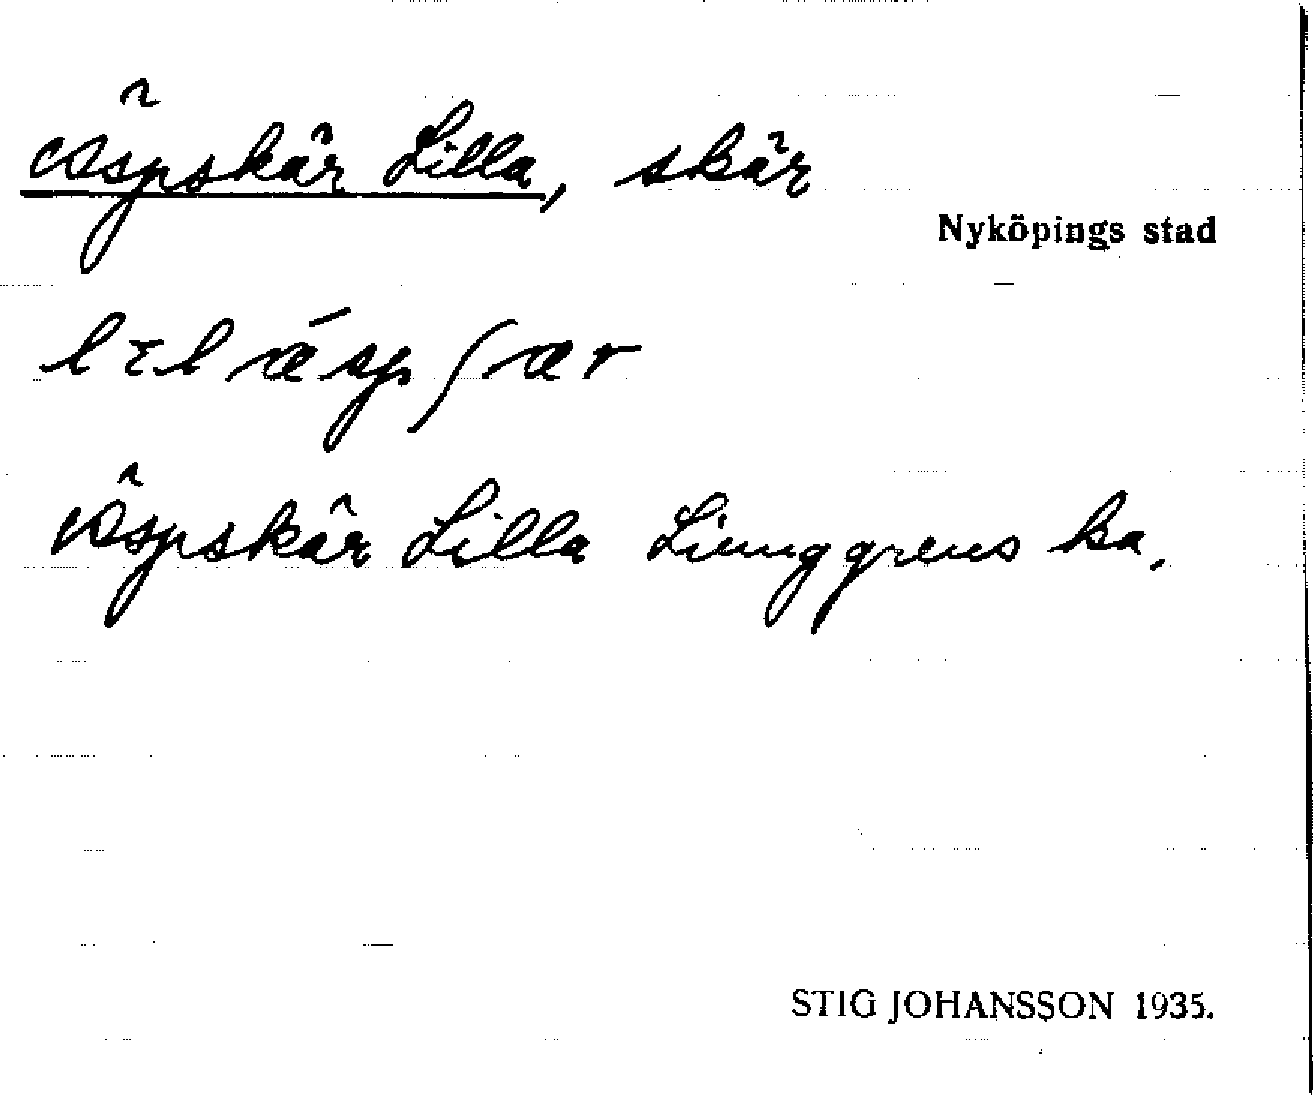 Äspskär Lilla, skär
Nyköpings stad
lɪl ǽspʃær
Äspskär Lilla Ljunggrens ka.
STIG JOHANSSON 1935.